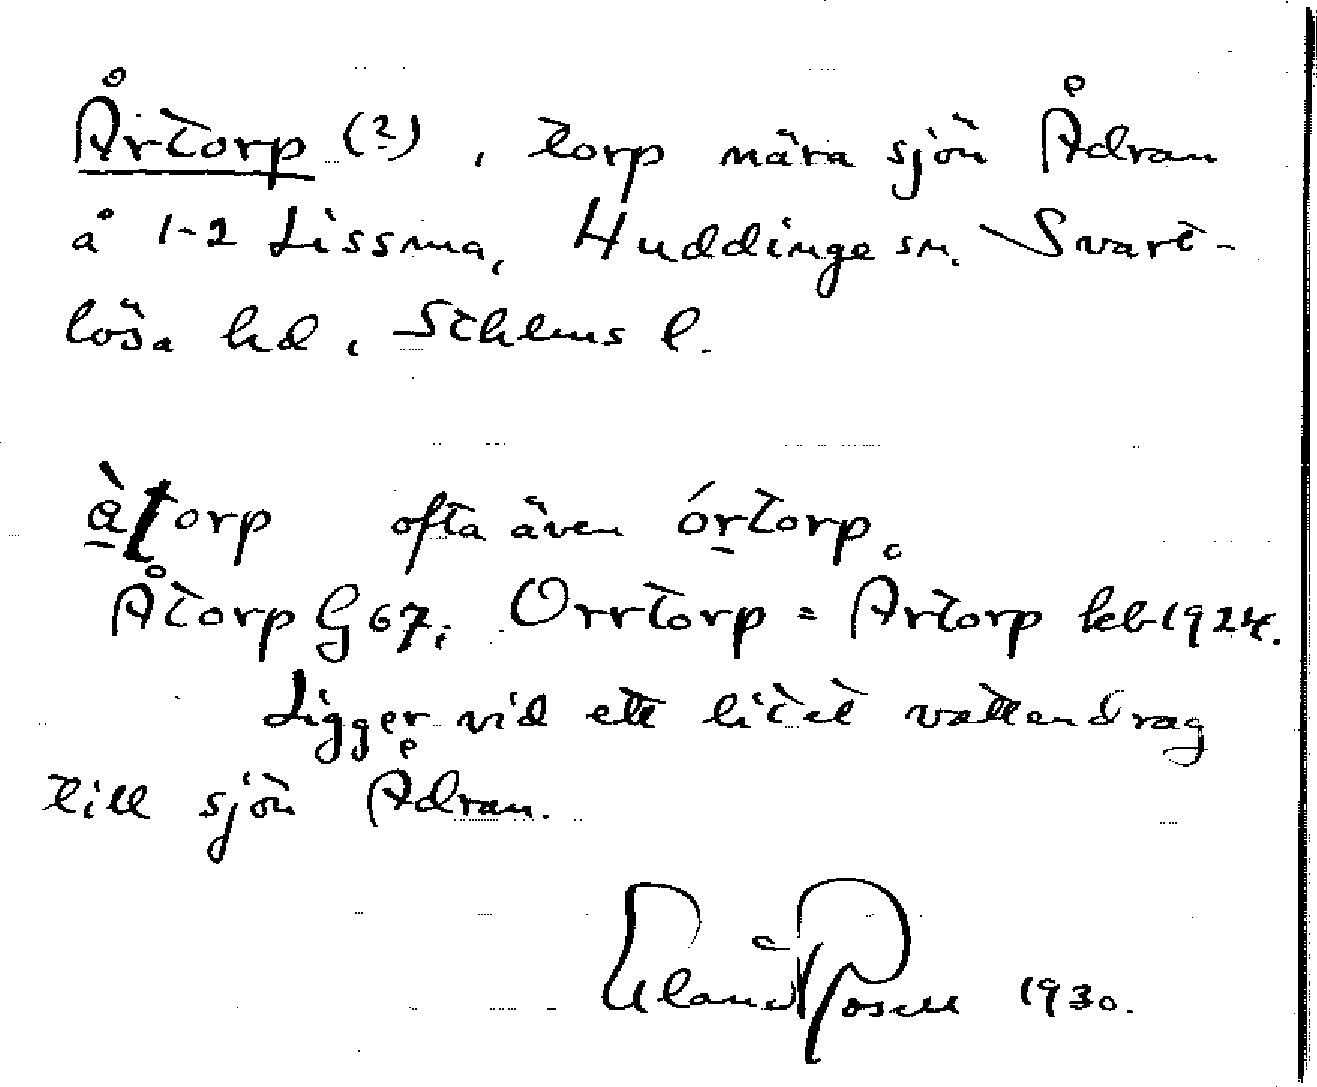 Årtorp (?), torp nära sjön Ådran
å 1-2 Lissma, Huddinge sn. Svart-
lösa hd, Sthlms l.
àtorp ofta även órtorp.
Åtorp G 67; Orrtorp = Årtorp kb 1924.
Ligger vid ett litet vattendrag
till sjön Ådran.
Rosell 1930.